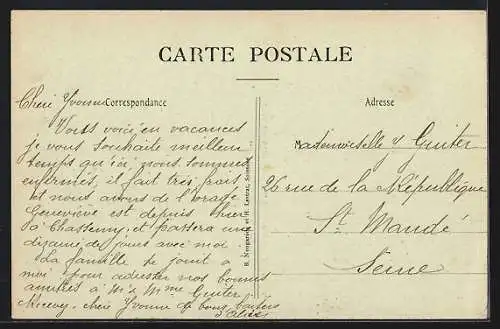 CARTE POSTALE
Correspondance
Adresse
Chère Yvonne
Vous voici en vacances
je vous souhaite meilleur
temps qu'ici nous sommes
enfermés, il fait très frais
et nous avons de l'orage
Geneviève est depuis hier
à Chassemy, et passera une
dizaine de jours avec moi.
La famille se joint à
moi pour adresser nos bonnes
amitiés à Mr & Mme Guiter
Recevez, chère Yvonne de bons baisers
d'Alice
Mademoiselle Y Guiter
26 rue de la République
St Mandé
Seine